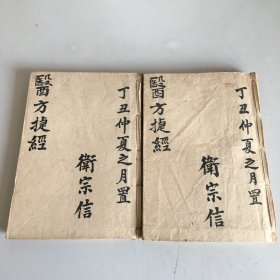 丁丑仲夏之月置
衛宗信
醫方捷經
丁丑仲夏之月置
衛宗信
醫方捷經